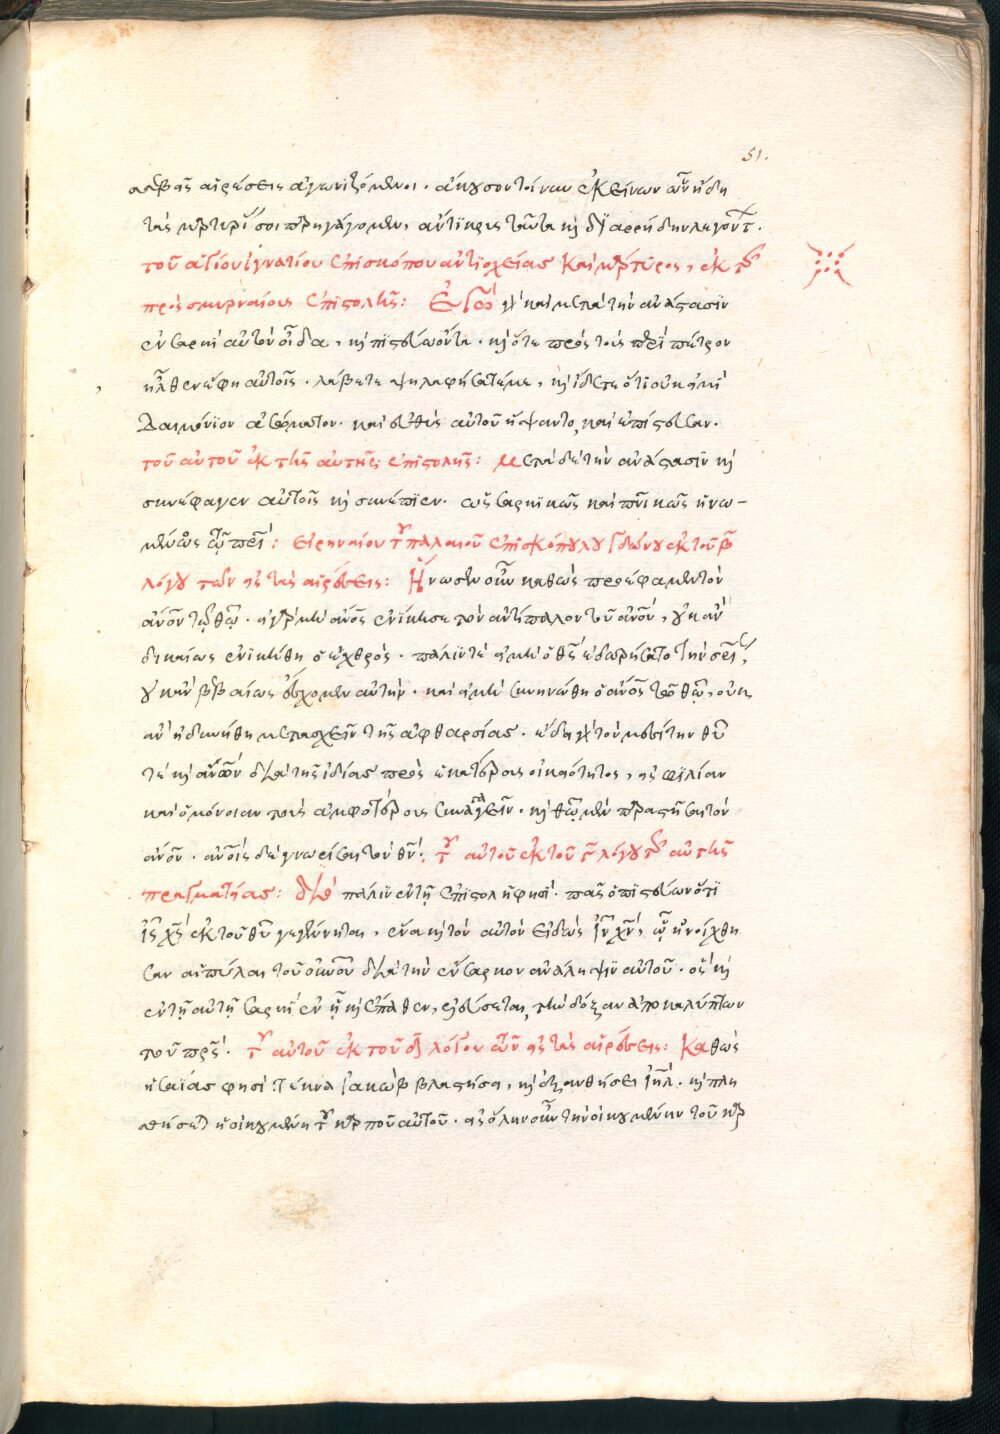 51.
λαβῆς αἱρέσεις ἀγωνιζόμενοι. ἄκουσον τοίνυν ἐκείνων ὧν ἤδη
τὰς μρτυρί σοι πρηγάγομεν, ἀντίκρυς ταῦτα κὴ διαρρήδην λεγόντ.
τοῦ ἁγίου ἰγνατίου ἐπισκόπου ἀντιοχείας καὶ μρτυρος, ἐκ τ
πρὸς σμυρναίους ἐπιστολῆς: Ἐγὼ γ καὶ μετὰ τὴν ἀνάστασϊν
ἐν σαρκὶ αὐτὸν οἶδα, κὴ πιστεύω ὄντα. κὴ ὅτε πρὸς τοὺς περὶ πέτρον
ἦλθεν ἔφη αὐτοῖς. λάβετε ψηλαφήσατέ με, κὴ ἴδετε ὅτι οὐκ εἰμὶ
δαιμόνϊον ἀσώματον. καὶ εὐθὺς αὐτοῦ ἥψαντο, καὶ ἐπίστευσαν.
τοῦ αὐτοῦ ἐκ τῆς αὐτῆς ἐπιστολῆς: μετὰ δὲ τὴν ἀνάστασϊν κὴ
συνέφαγεν αὐτοῖς κὴ συνέπϊεν. ὡς σαρκϊκῶς καὶ πνϊκῶς ἡνω–
μένος τῷ πρϊ: εἰρηναίου τ παλαιοῦ ἐπισκόπου λουγδώνου ἐκ τοῦ β
λόγου τῶν εἰς τὰς αἱρέσεις: Ἥνωσεν οὖν καθὼς προέφαμεν τὸν
ἄνον τῷ θῶ. εἰ γρ μὴ ἄνος ἐνίκησε τὸν ἀντίπαλον τοῦ ἀνου, οὐκ ἂν
δικαίως ἐνϊκήθη ὁ ἐχθρός. πάλιν τε εἰ μὴ ὁ θς ἐδωρήσατο τὴν σρϊ,
οὐκ ἂν βεβαίως ἔσχομεν αὐτήν. καὶ εἰ μὴ συνηνώθη ὁ ἄνος τῶ θῶ, οὐκ
ἂν ἠδυνήθη μετασχεῖν τῆς ἀφθαρσίας. ἔδει γ τὸν μεσίτην θυ
τε κὴ ἀνων διὰ τῆς ἰδίας πρὸς ἑκατέρους οἰκιότητος, εἰς φϊλίαν
καὶ ὁμόνοιαν τοὺς ἀμφοτέρους συναγαγεῖν. κὴ θῶ μὲν πραστῆσαι τὸν
ἄνον. ἀνοις δὲ γνωρίσαι τὸν θν: τ αὐτοῦ ἐκ τοῦ γ λόγου τ αὐτῆς
πραγματείας: Διὸ πάλιν ἐν τῇ ἐπιστολῇ φησί. πᾶς ὁ πϊστεύων ὅτϊ
ἰς χς ἐκ τοῦ θυ γεγέννηται, ἕνα κὴ τὸν αὐτὸν εἰδὼς ἰν χν, ᾧ ἠνοίχθη
σαν αἱ πύλαι τοῦ οὐνου διὰ τὴν ἔνσαρκον ἀνάληψϊν αὐτοῦ. ὃς κὴ
ἐν τῇ αὐτῇ σαρκὶ ἐν ᾗ κὴ ἔπαθεν, ἐλεύσεται, τὴν δόξαν ἀποκαλύπτων
τοῦ πρς. τ αὐτοῦ ἐκ τοῦ δ λόγου τῶν εἰς τὰς αἱρέσεις: Καθὼς
ἡσαΐας φησὶ τέκνα ἰακὼβ βλαστήσει, κὴ ἐξανθήσει ἰηλ. κὴ πλη
σθήσεται ἡ οἰκουμένη τ κρποῦ αὐτοῦ. εἰς ὅλην οὖν τὴν οἰκουμένην τοῦ κρ